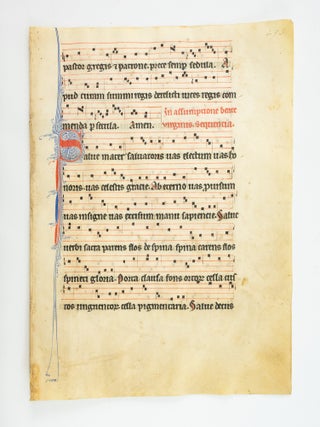 pastor gregis ⁊ patrone prece semp sedula. A
pud curiam summi regis derelicti uices regis com
menda p secula. Amen. In assumptione beate
uirginis sequencia.
Salue mater saluatoris uas electum uas ho
noris uas celestis gracie. Ab eterno uas prouisum
uas insigne uas excisum manu sapiencie. Salue
uerbi sacra parens flos de spina spina carens flos
spineti gloria. Porta clausa fons ortorum cella cus
tos unguentorum cella pigmentaria. Salue decus